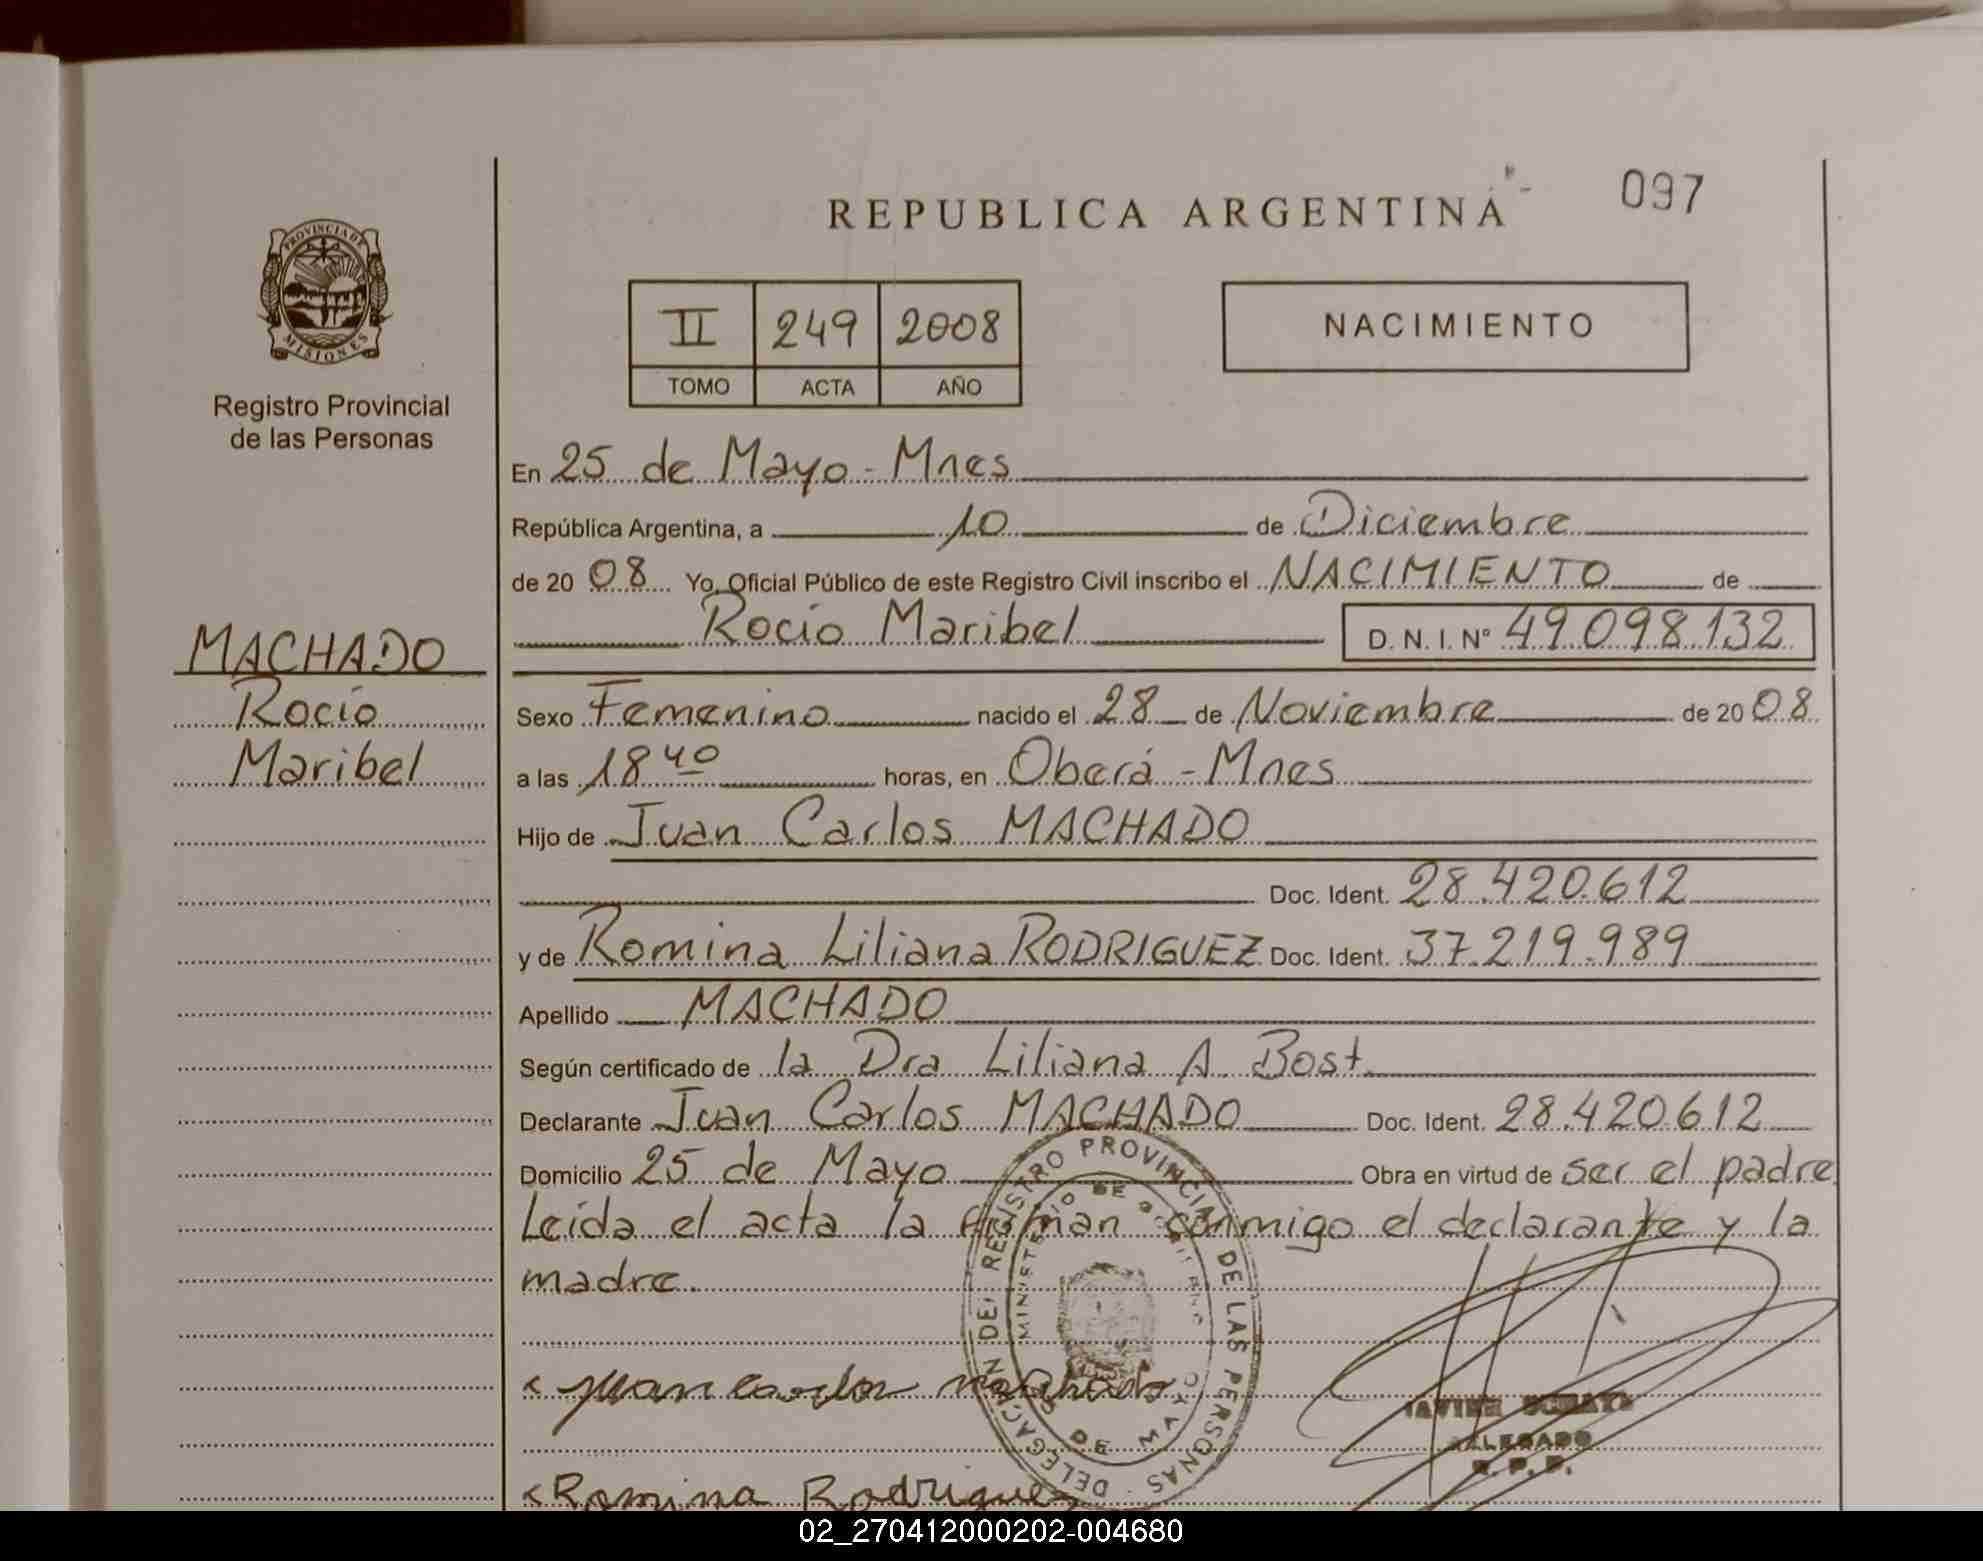 REPUBLICA ARGENTINA
097
PROVINCIA DE
MISIONES
Registro Provincial
de las Personas
II 249 2008
TOMO ACTA AÑO
NACIMIENTO
En 25 de Mayo - Mnes
República Argentina, a 10 de Diciembre
de 20 08 Yo, Oficial Público de este Registro Civil inscribo el NACIMIENTO de
Rocío Maribel D. N. I. N° 49.098.132
MACHADO
Rocío
Maribel
Sexo Femenino nacido el 28 de Noviembre de 20 08
a las 18 40 horas, en Oberá - Mnes
Hijo de Juan Carlos MACHADO
Doc. Ident. 28.420.612
y de Romina Liliana RODRIGUEZ Doc. Ident. 37.219.989
Apellido MACHADO
Según certificado de la Dra Liliana A. Bost.
Declarante Juan Carlos MACHADO Doc. Ident. 28.420.612
Domicilio 25 de Mayo Obra en virtud de ser el padre
Leída el acta la firman conmigo el declarante y la
madre.
DELEGACION DEL REGISTRO PROVINCIAL DE LAS PERSONAS
MINISTERIO DE
DE MAYO
Juan Carlos Machado
JAVIER
DELEGADO
R. P. P.
Romina Rodriguez
02_270412000202-004680